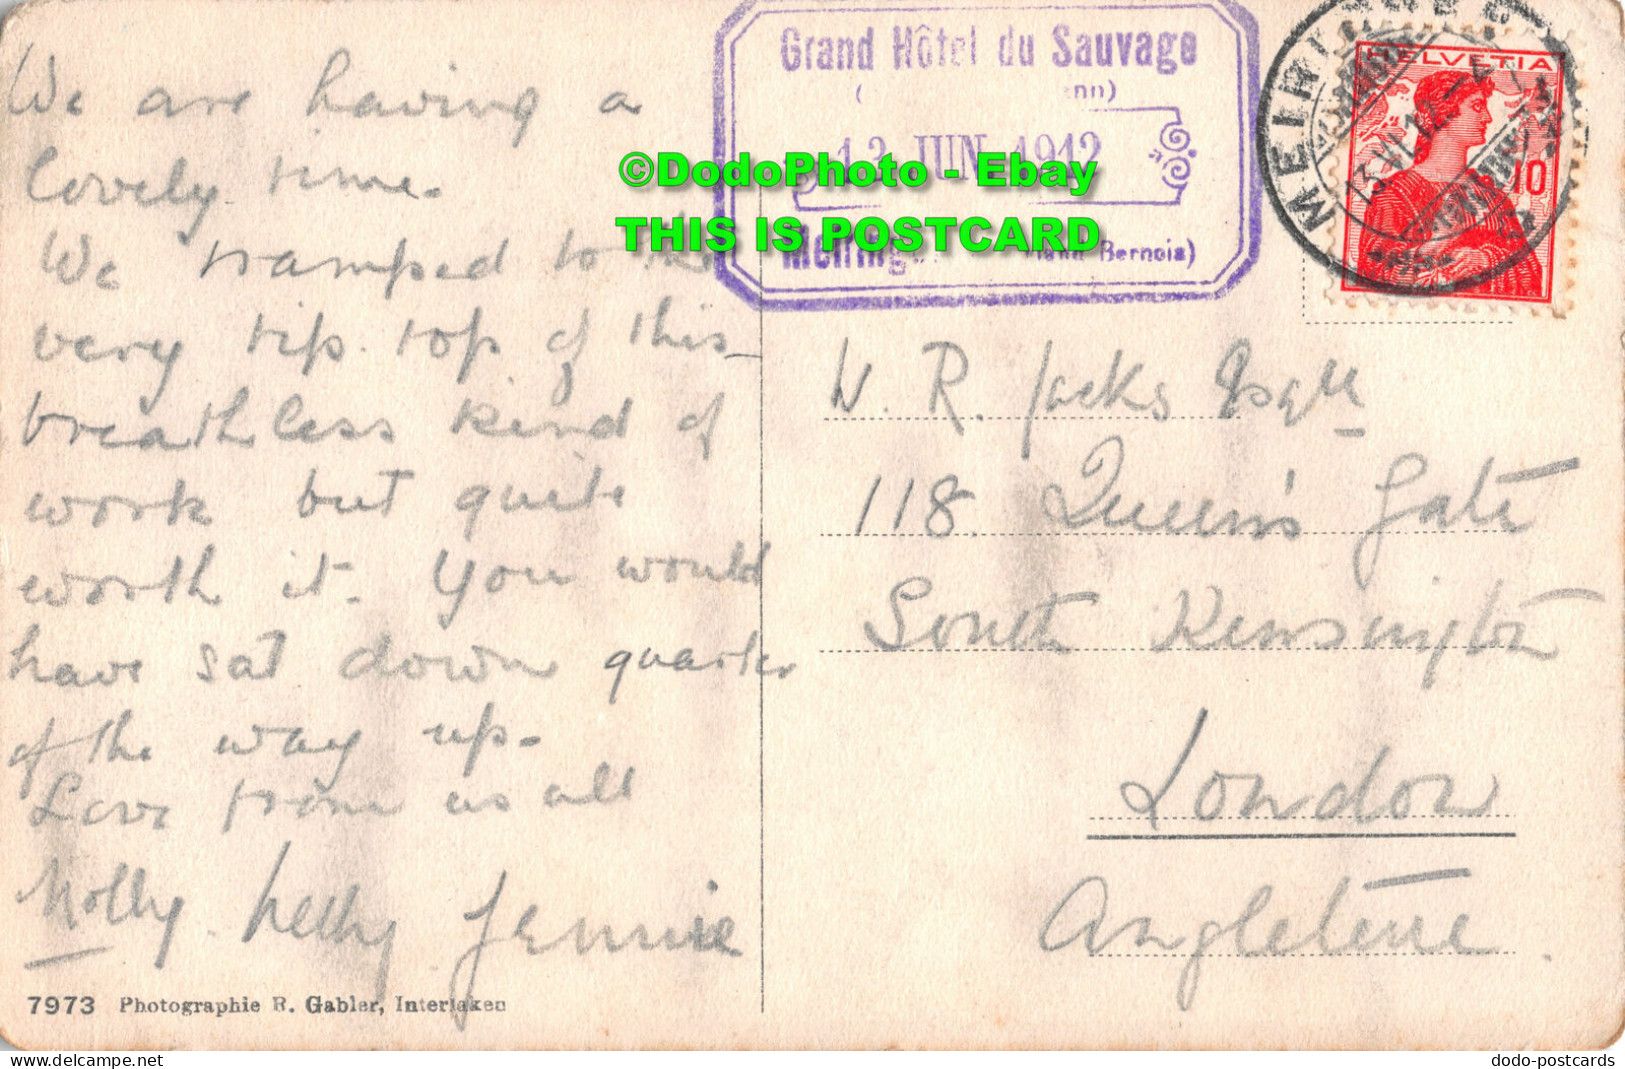 We are having a
lovely time.
We tramped to the
very tip top of this
breathless kind of
work but quite
worth it. You would
have sat down quarter
of the way up.
Love from us all
Molly Nelly Jennie
7973 Photographie R. Gabler, Interlaken
Grand Hôtel du Sauvage
13 JUN. 1912
Bernois)
©DodoPhoto - Ebay
THIS IS POSTCARD
MEIRINGEN
HELVETIA
10
W. R. Jacks Esqre
118 Queen's Gate
South Kensington
London
Angleterre.
Ansichtskarten-center.de
dodo-postcards